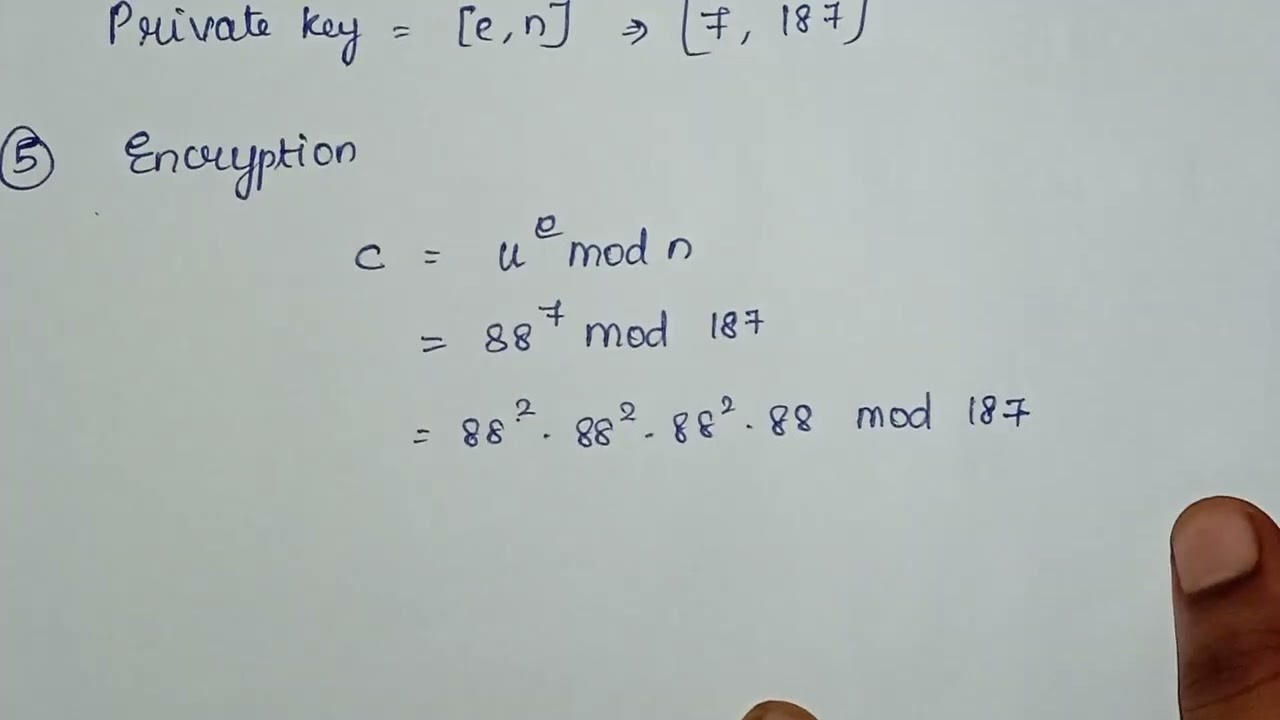 Private key = [e, n] ⇒ [7, 187]
⑤ Encryption
c = u^e mod n
= 88^7 mod 187
= 88^2 . 88^2 . 88^2 . 88 mod 187